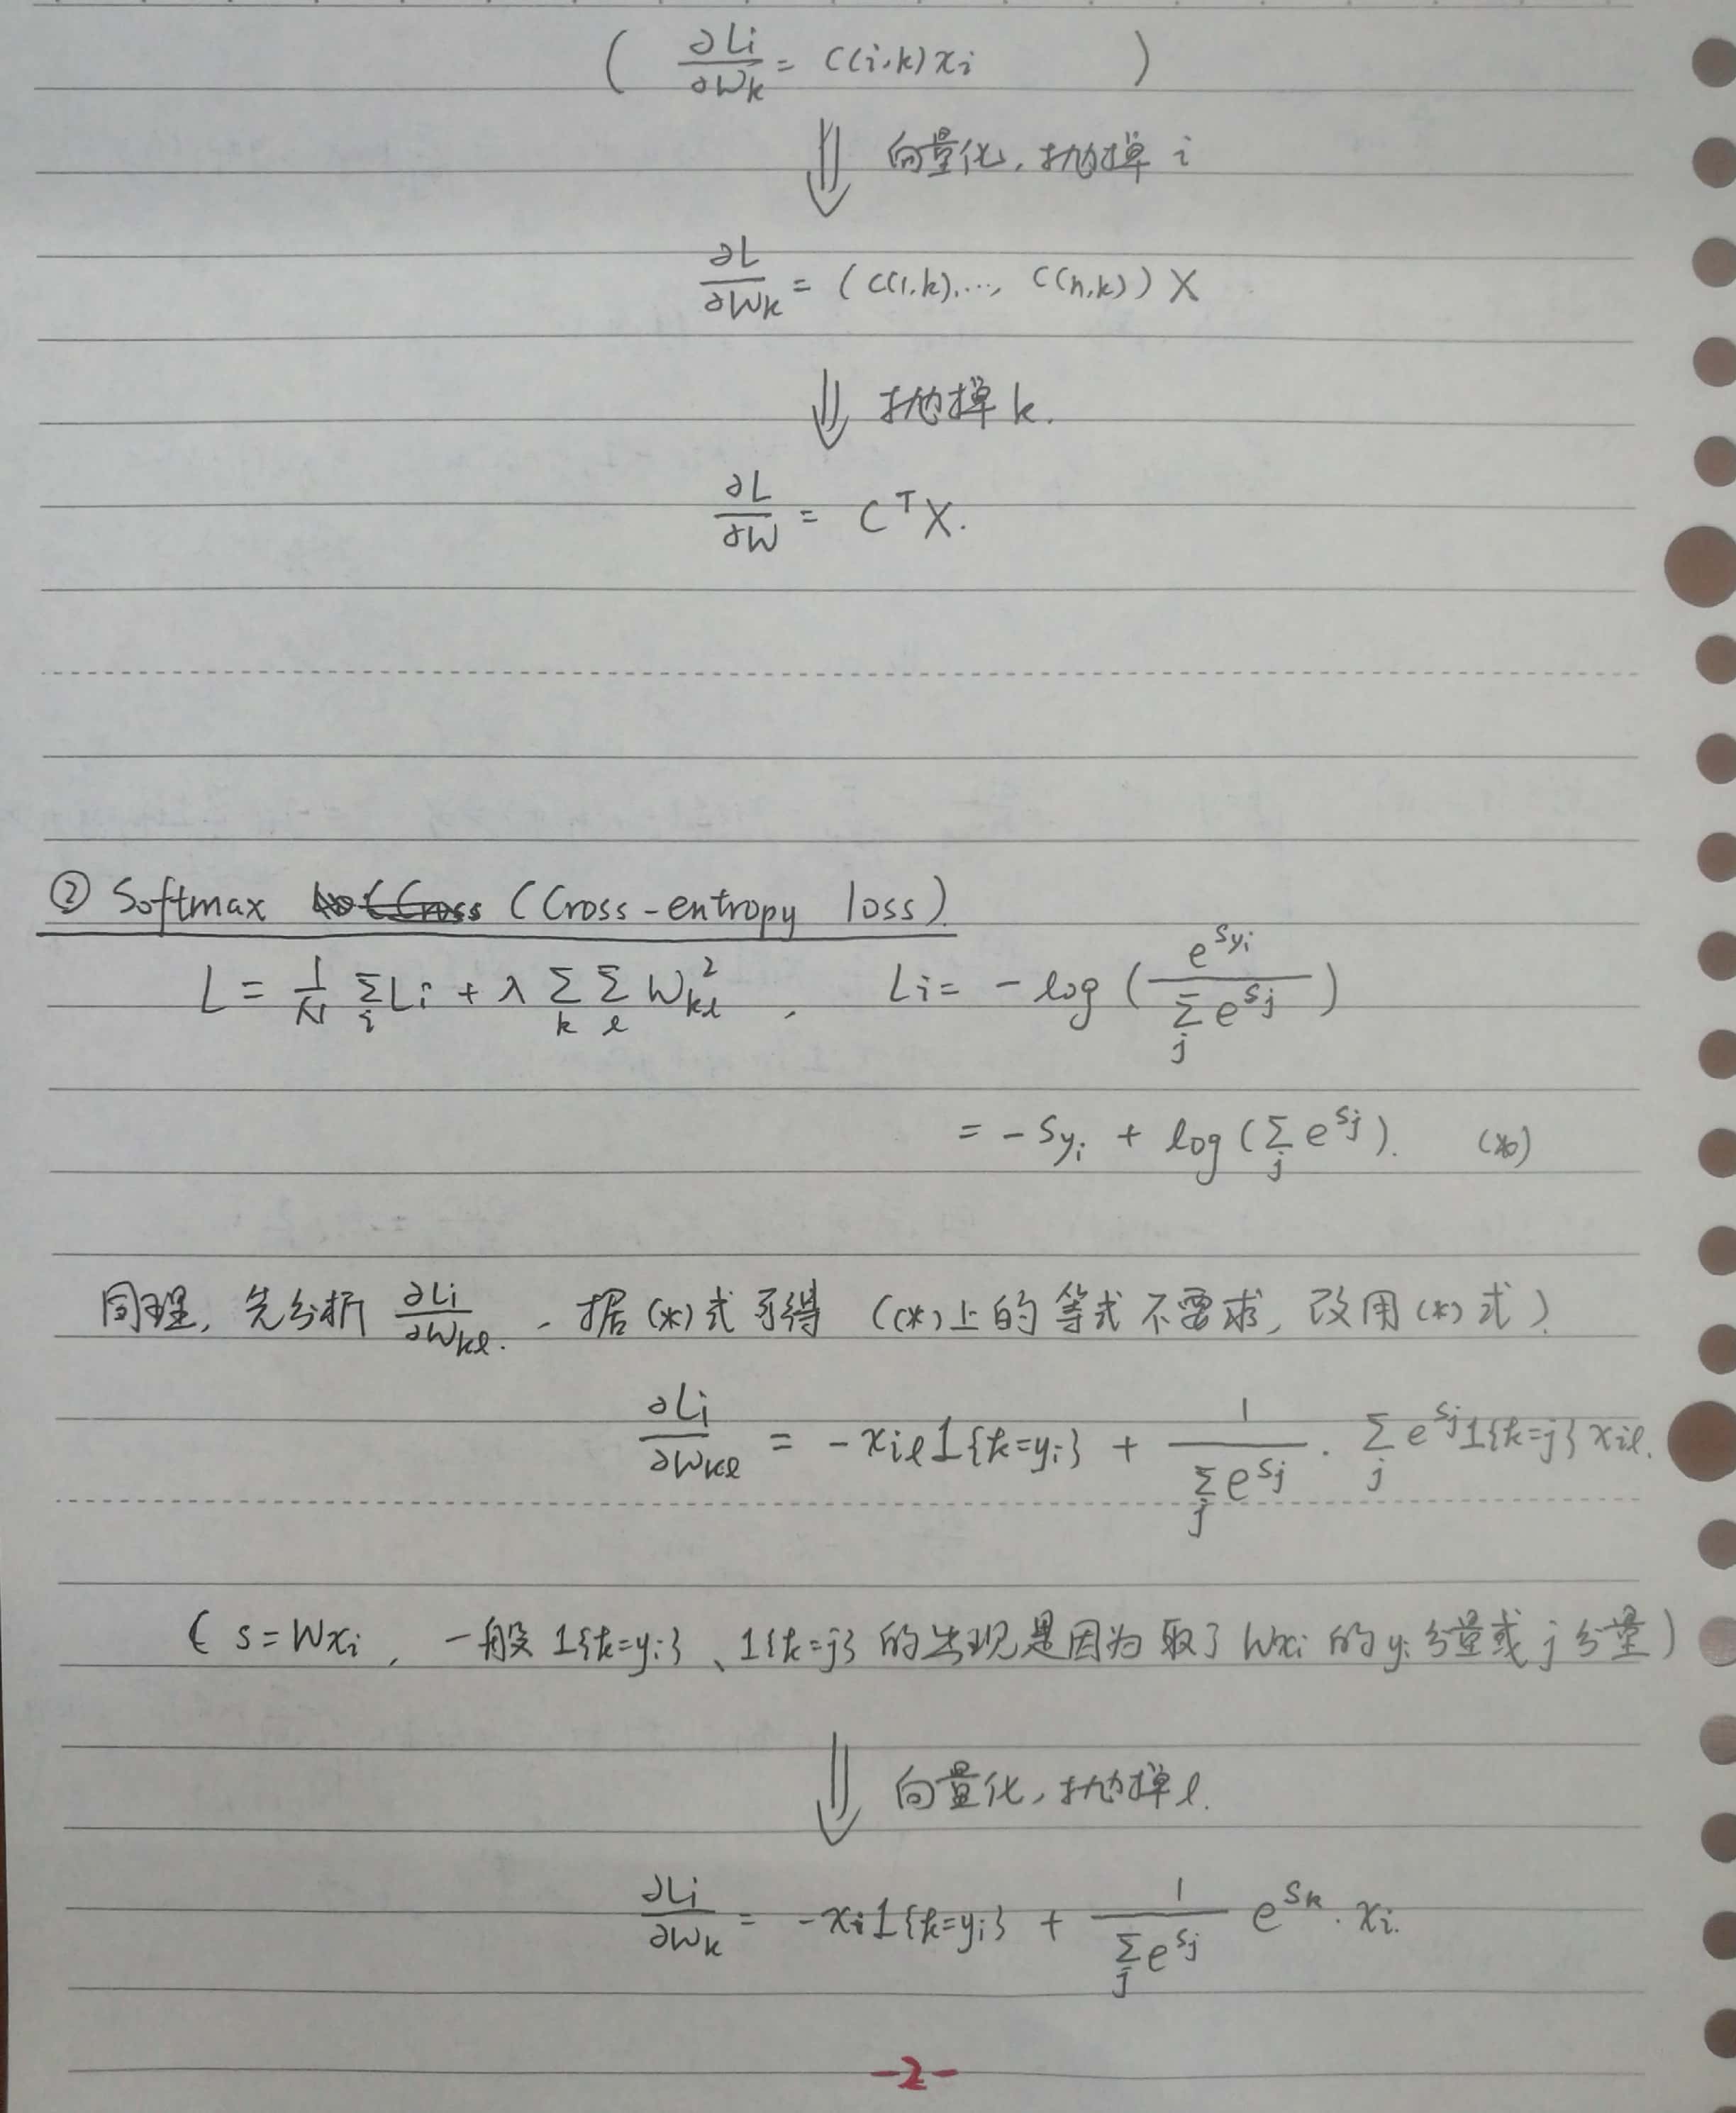 ( ∂Li/∂Wk = C(i,k)xi )
⇓ 向量化,抛掉 i
∂L/∂Wk = (C(1,k),…, C(n,k)) X
⇓ 抛掉 k.
∂L/∂W = C^T X.
② Softmax (Cross-entropy loss).
L = 1/N Σ_i Li + λ Σ_k Σ_l W_kl^2 , Li = -log( e^{s_yi} / Σ_j e^{sj} )
= -s_yi + log(Σ_j e^{sj}). (*)
同理, 先分析 ∂Li/∂W_kl. , 据(*)式可得 ((*)上的等式不要求, 改用(*)式).
∂Li/∂W_kl = -x_il 1{k=yi} + 1/(Σ_j e^{sj}) · Σ_j e^{sj} 1{k=j} x_il.
( s=Wxi , 一般 1{k=yi} 、1{k=j} 的出现是因为取了 Wxi 的 yi 分量或 j 分量)
⇓ 向量化,抛掉 l.
∂Li/∂Wk = -xi 1{k=yi} + 1/(Σ_j e^{sj}) e^{sk} · xi.
-2-